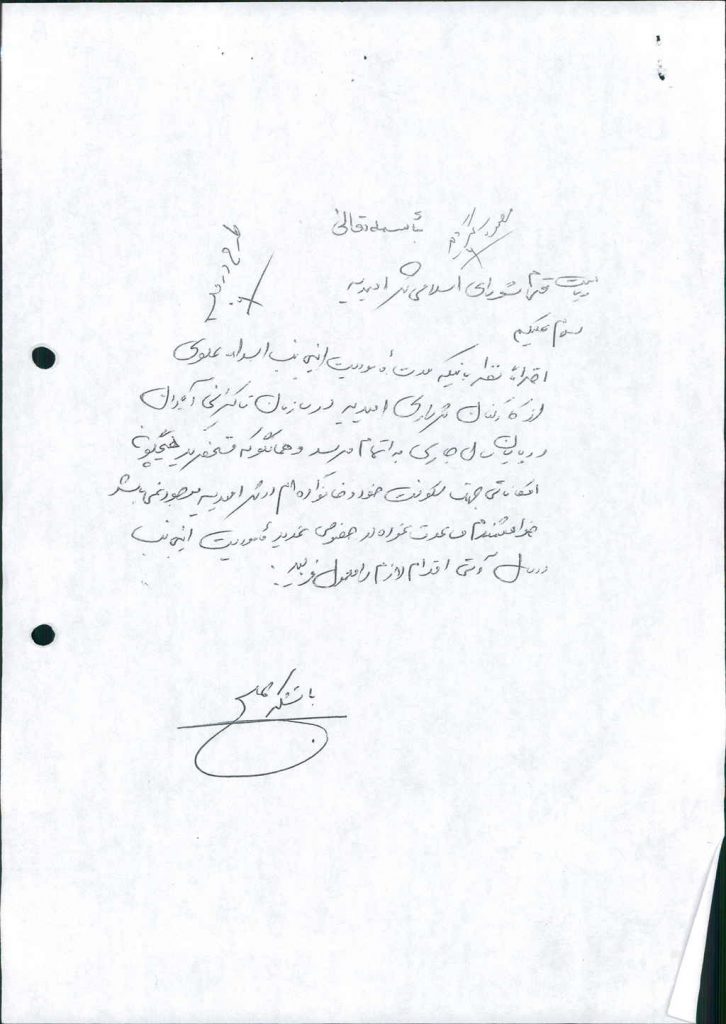 باسمه تعالی
ریاست محترم شورای اسلامی شهر امیدیه
سلام علیکم
احتراماً نظر باینکه مدت مأموریت اینجانب اسداله علوی
از کارکنان شهرداری امیدیه در سازمان تاکسیرانی آبادان
در پایان سال جاری به اتمام میرسد و همانگونه که مستحضرید هیچگونه
امکاناتی جهت سکونت خود و خانواده ام در شهر امیدیه میسور نمی باشد
خواهشمندم مساعدت نموده در خصوص تمدید مأموریت اینجانب
در سال آتی اقدام لازم را معمول فرمایید
با تشکر